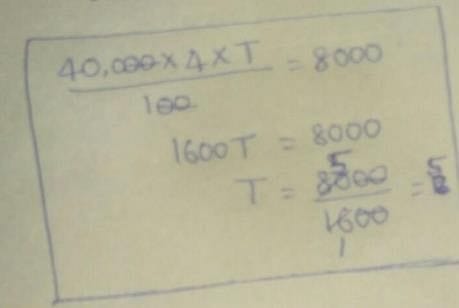 40,000 × 4 × T = 8000
100
1600T = 8000
5
T = 8000 = 5
1600
1